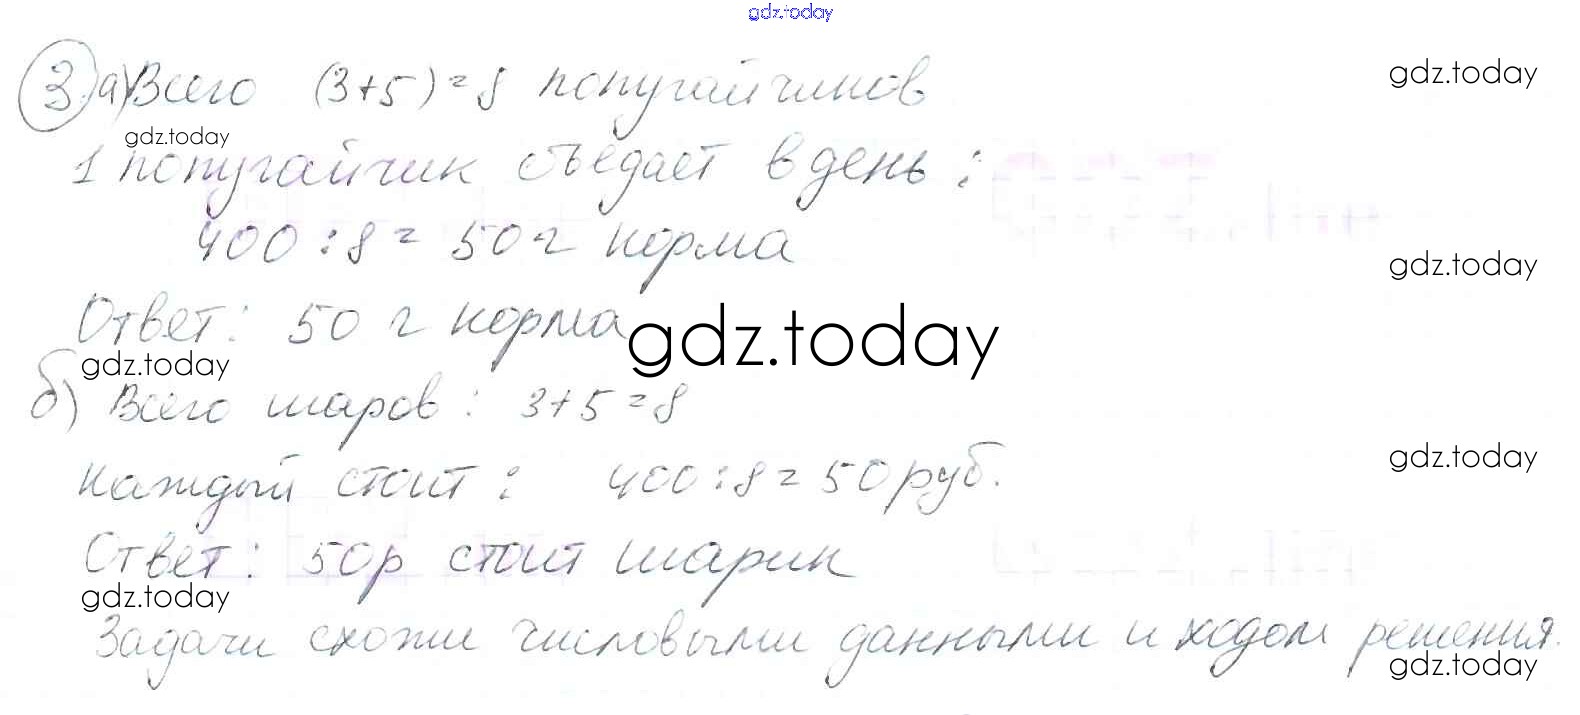 gdz.today
3 а) Всего (3+5)=8 попугайчиков
gdz.today
gdz.today
1 попугайчик съедает в день:
400:8=50 г корма
gdz.today
Ответ: 50 г корма
gdz.today
gdz.today
б) Всего шаров: 3+5=8
gdz.today
Каждый стоит: 400:8=50 руб.
Ответ: 50р стоит шарик
gdz.today
Задачи схожи числовыми данными и ходом решения.
gdz.today